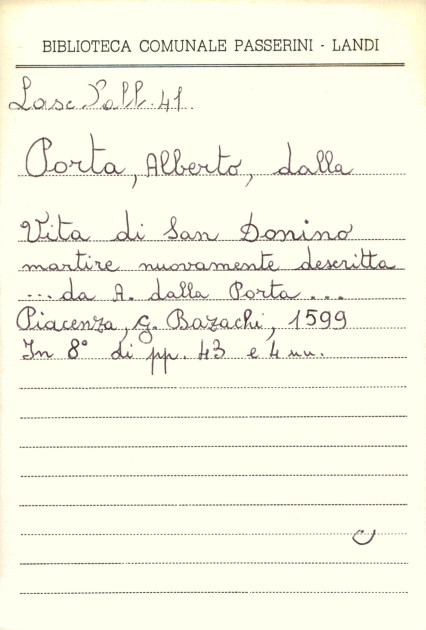 BIBLIOTECA COMUNALE PASSERINI - LANDI
Lasc. Pall. 41.
Porta, Alberto, dalla
Vita di San Donino
martire nuovamente descritta
... da A. dalla Porta ...
Piacenza, G. Bazachi, 1599
In 8° di pp. 43 e 4 nn.